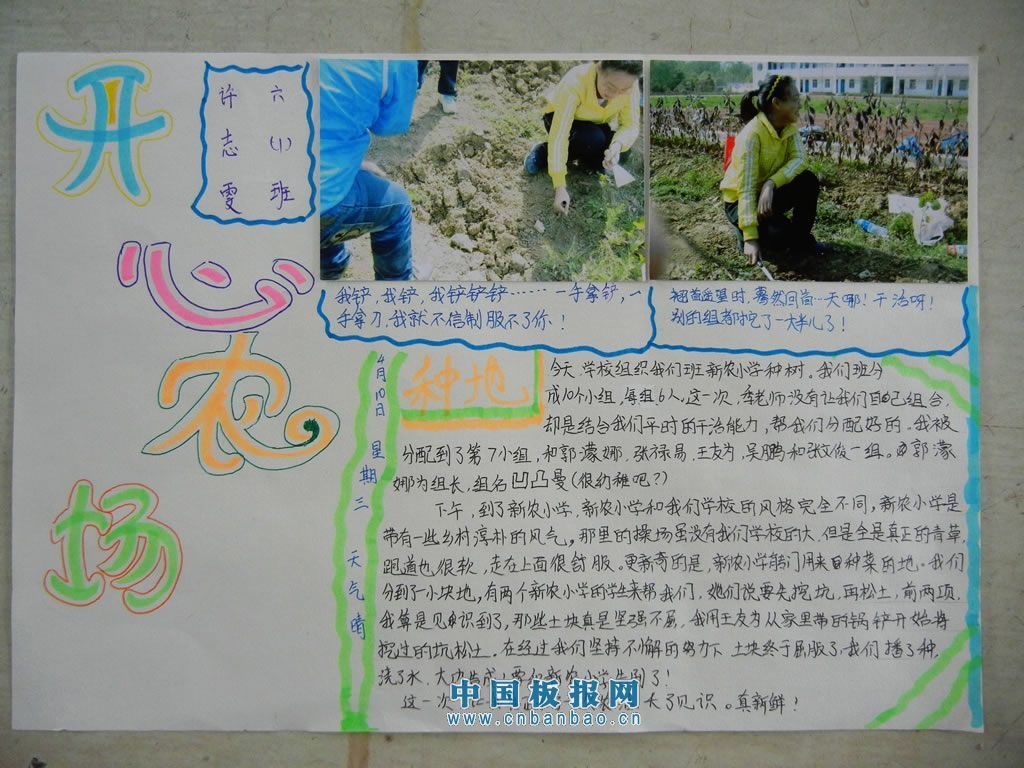 开心农场
六(1)班
许志雯
我铲,我铲,我铲铲铲……一手拿铲,一
手拿刀,我就不信制服不了你!
翘首遥望时,蓦然回首…天哪!干活呀!
别的组都挖了一大半儿了!
4月10日 星期三 天气晴
种地
今天,学校组织我们班新农小学种树。我们班分
成10个小组,每组6人。这一次,李老师没有让我们自己组合,
却是结合我们平时的干活能力,帮我们分配好的。我被
分配到了第7小组,和郭濛娜,张禄易,王友为,吴鹏和张俊一组。由郭濛
娜为组长,组名凹凸曼(很幼稚吧?)
下午,到了新农小学,新农小学和我们学校的风格完全不同,新农小学是
带有一些乡村淳朴的风气,那里的操场虽没有我们学校的大,但是全是真正的青草,
跑道也很软,走在上面很舒服。更新奇的是,新农小学部门用来自种菜的地。我们
分到了小块地,有两个新农小学的学生来帮我们,她们说要先挖坑,再松土,前两项,
我算是见识到了,那些土块真是坚强不屈,我用王友为从家里带的锅铲开始将
挖过的坑松土。在经过我们坚持不懈的努力下,土块终于屈服了,我们播了种,
浇了水,大功告成!要和新农小学告别了!
这一次 大了见识。真新鲜!
中国板报网
www.cnbanbao.cn